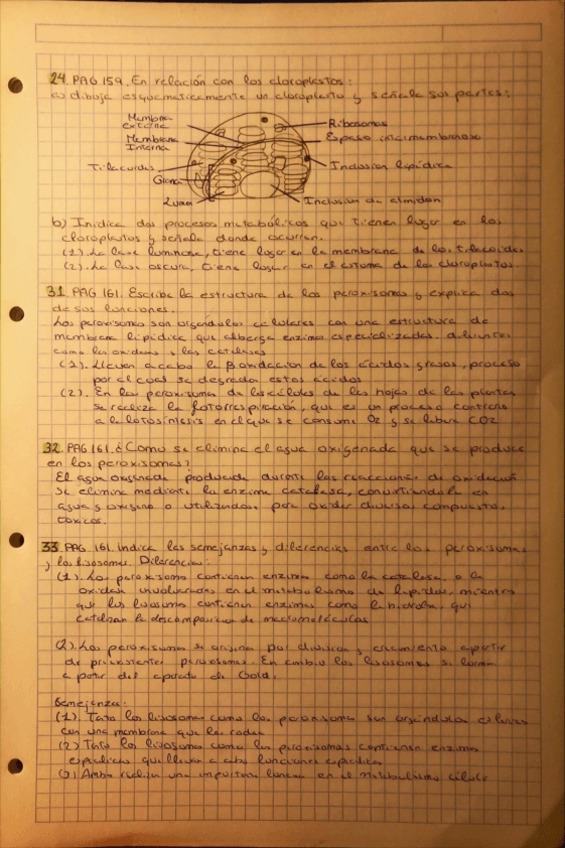 24. PAG 159. En relación con los cloroplastos:
a) dibuja esquemáticamente un cloroplasto y señala sus partes:
Membrana externa
Membrana Interna
Tilacoides
Grana
Lumen
Ribosomas
Espacio intermembranoso
Inclusión lipídica
Inclusión de almidón
b) Inidica dos procesos metabólicos que tienen lugar en los
cloroplastos y señala donde ocurren.
(1). La fase luminosa, tiene lugar en la membrana de los tilacoides
(2). La fase oscura, tiene lugar en el estroma de los cloroplastos.
31. PAG 161. Escribe la estructura de los peroxisomas y explica dos
de sus funciones.
Los peroxisomas son orgánulos celulares con una estructura de
membrana lipídica que alberga enzimas especializadas
como las oxidasas y las catalasas
(1). Llevan a cabo la β oxidación de los ácidos grasos, proceso
por el cual se degradan estos ácidos
(2). En los peroxisomas de las células de las hojas de las plantas
se realiza la fotorrespiración, que es un proceso contrario
a la fotosíntesis en el que se consume O2 y se libera CO2
32. PAG 161. ¿Como se elimina el agua oxigenada que se produce
en los peroxisomas?
El agua oxigenada producida durante las reacciones de oxidación
se elimina mediante la enzima catalasa, convirtiendola en
agua y oxigeno o utilizandola para oxidar diversos compuestos
tóxicos.
33. PAG. 161. Indica las semejanzas y diferencias entre los peroxisomas
y los lisosomas. Diferencias:
(1). Los peroxisomas contienen enzimas como la catalasa o la
oxidasa involucradas en el metabolismo de lipidos, mientras
que los lisosomas contienen enzimas como la hidrolasa, que
catalizan la descomposición de macromoléculas
(2). Los peroxisomas se origina por división y crecimiento a partir
de preexistentes peroxisomas. En cambio los lisosomas se forman
a partir del aparato de Golgi.
Semejanzas:
(1). Tanto los lisosomas como los peroxisomas son orgánulos celulares
con una membrana que los rodea
(2) Tanto los lisosomas como los peroxisomas contienen enzimas
específicas que llevan a cabo funciones específicas
(3) Ambos realizan una importante función en el metabolismo celular